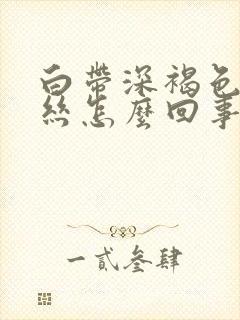 白帶深褐色
絲怎麼回事
一貳叄肆